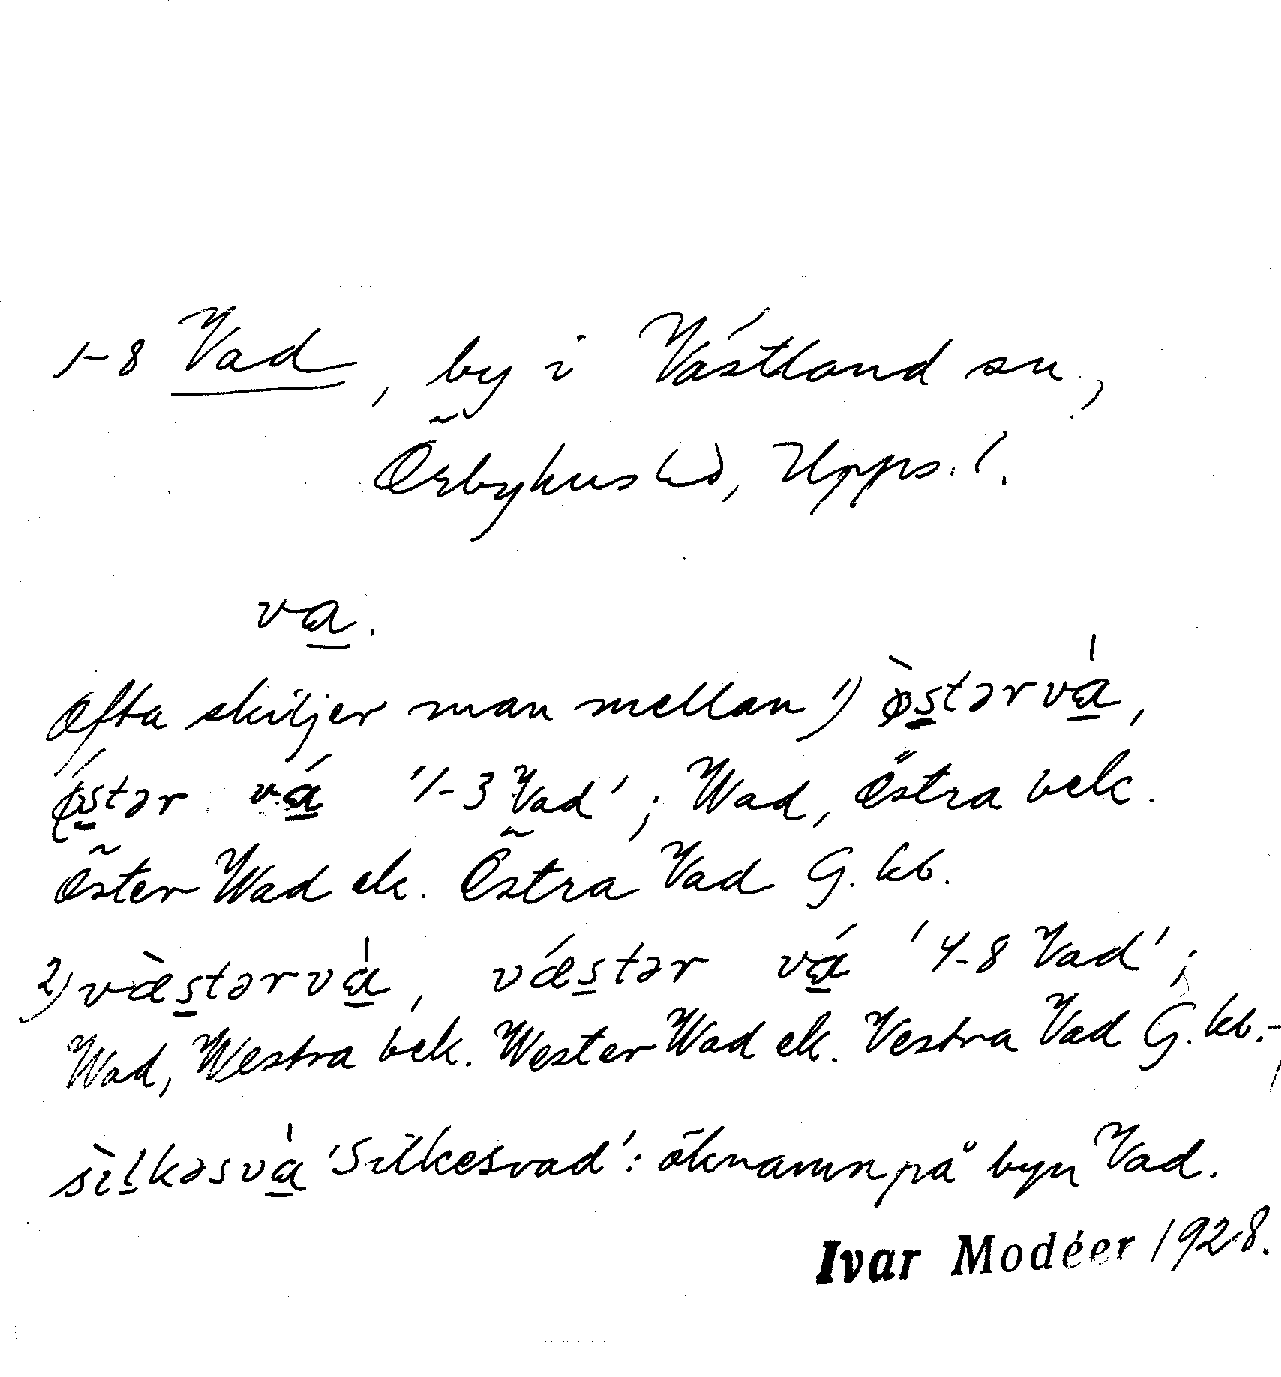 1-8 Vad, by i Västland sn.,
Örbyhus hd, Upps. l.
va̲.
Ofta skiljer man mellan 1) ø̀s̲tərvá̲,
ǿs̲tər vá̲ '1-3 Vad'; Wad, Östra bek.
Öster Wad ek. Östra Vad G. kb.
2) væ̀s̲tərvà̲, vǽs̲tər vá̲ '4-8 Vad';
Wad, Westra bek. Wester Wad ek. Vestra Vad G. kb.-
sìl̲kəsvà̲ 'Silkesvad': öknamn på byn Vad.
Ivar Modéer 1928.